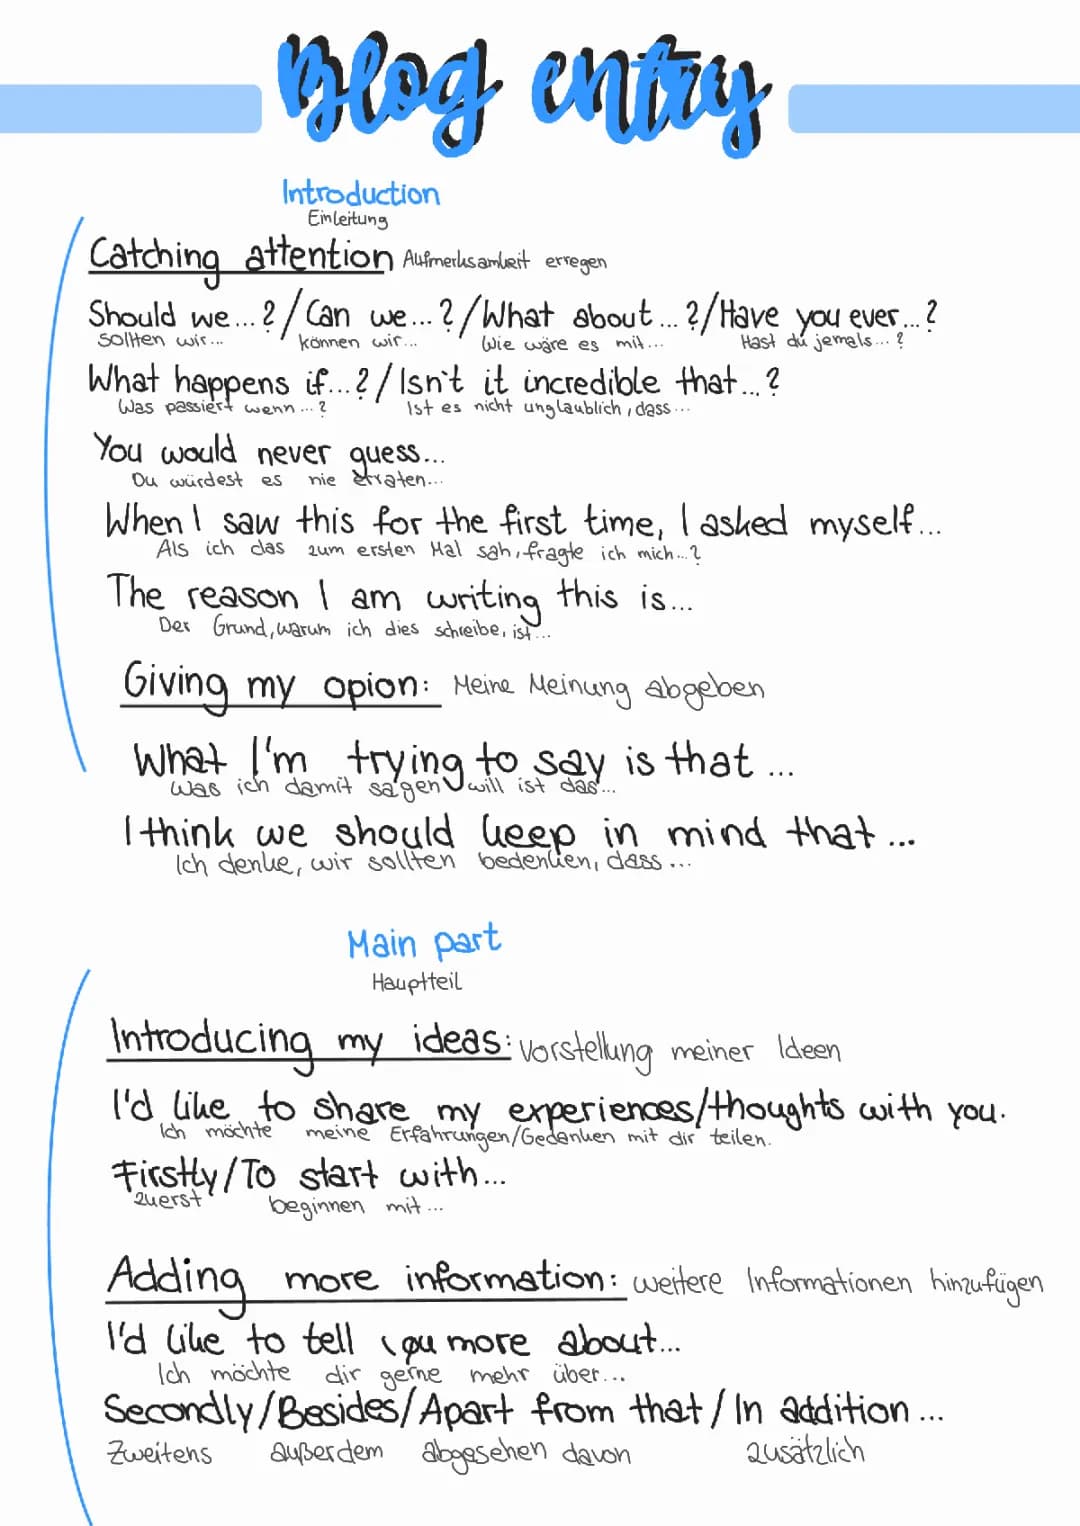 Blog entry
Introduction
Einleitung
Catching attention Aufmerksamkeit erregen
Should we...?/Can we...?/What about...?/Have you ever...?
Sollten wir... können wir... Wie wäre es mit... Hast du jemals...?
What happens if...?/Isn't it incredible that...?
Was passiert wenn...? Ist es nicht unglaublich, dass...
You would never guess...
Du würdest es nie erraten...
When I saw this for the first time, I asked myself...
Als ich das zum ersten Mal sah, fragte ich mich...?
The reason I am writing this is...
Der Grund, warum ich dies schreibe, ist...
Giving my opion: Meine Meinung abgeben
What I'm trying to say is that...
Was ich damit sagen will ist das...
I think we should keep in mind that...
Ich denke, wir sollten bedenken, dass...
Main part
Hauptteil
Introducing my ideas: Vorstellung meiner Ideen
I'd like to share my experiences/thoughts with you.
Ich möchte meine Erfahrungen/Gedanken mit dir teilen.
Firstly/To start with...
zuerst beginnen mit...
Adding more information: weitere Informationen hinzufügen
I'd like to tell you more about...
Ich möchte dir gerne mehr über...
Secondly/Besides/Apart from that/In addition...
Zweitens außerdem abgesehen davon zusätzlich